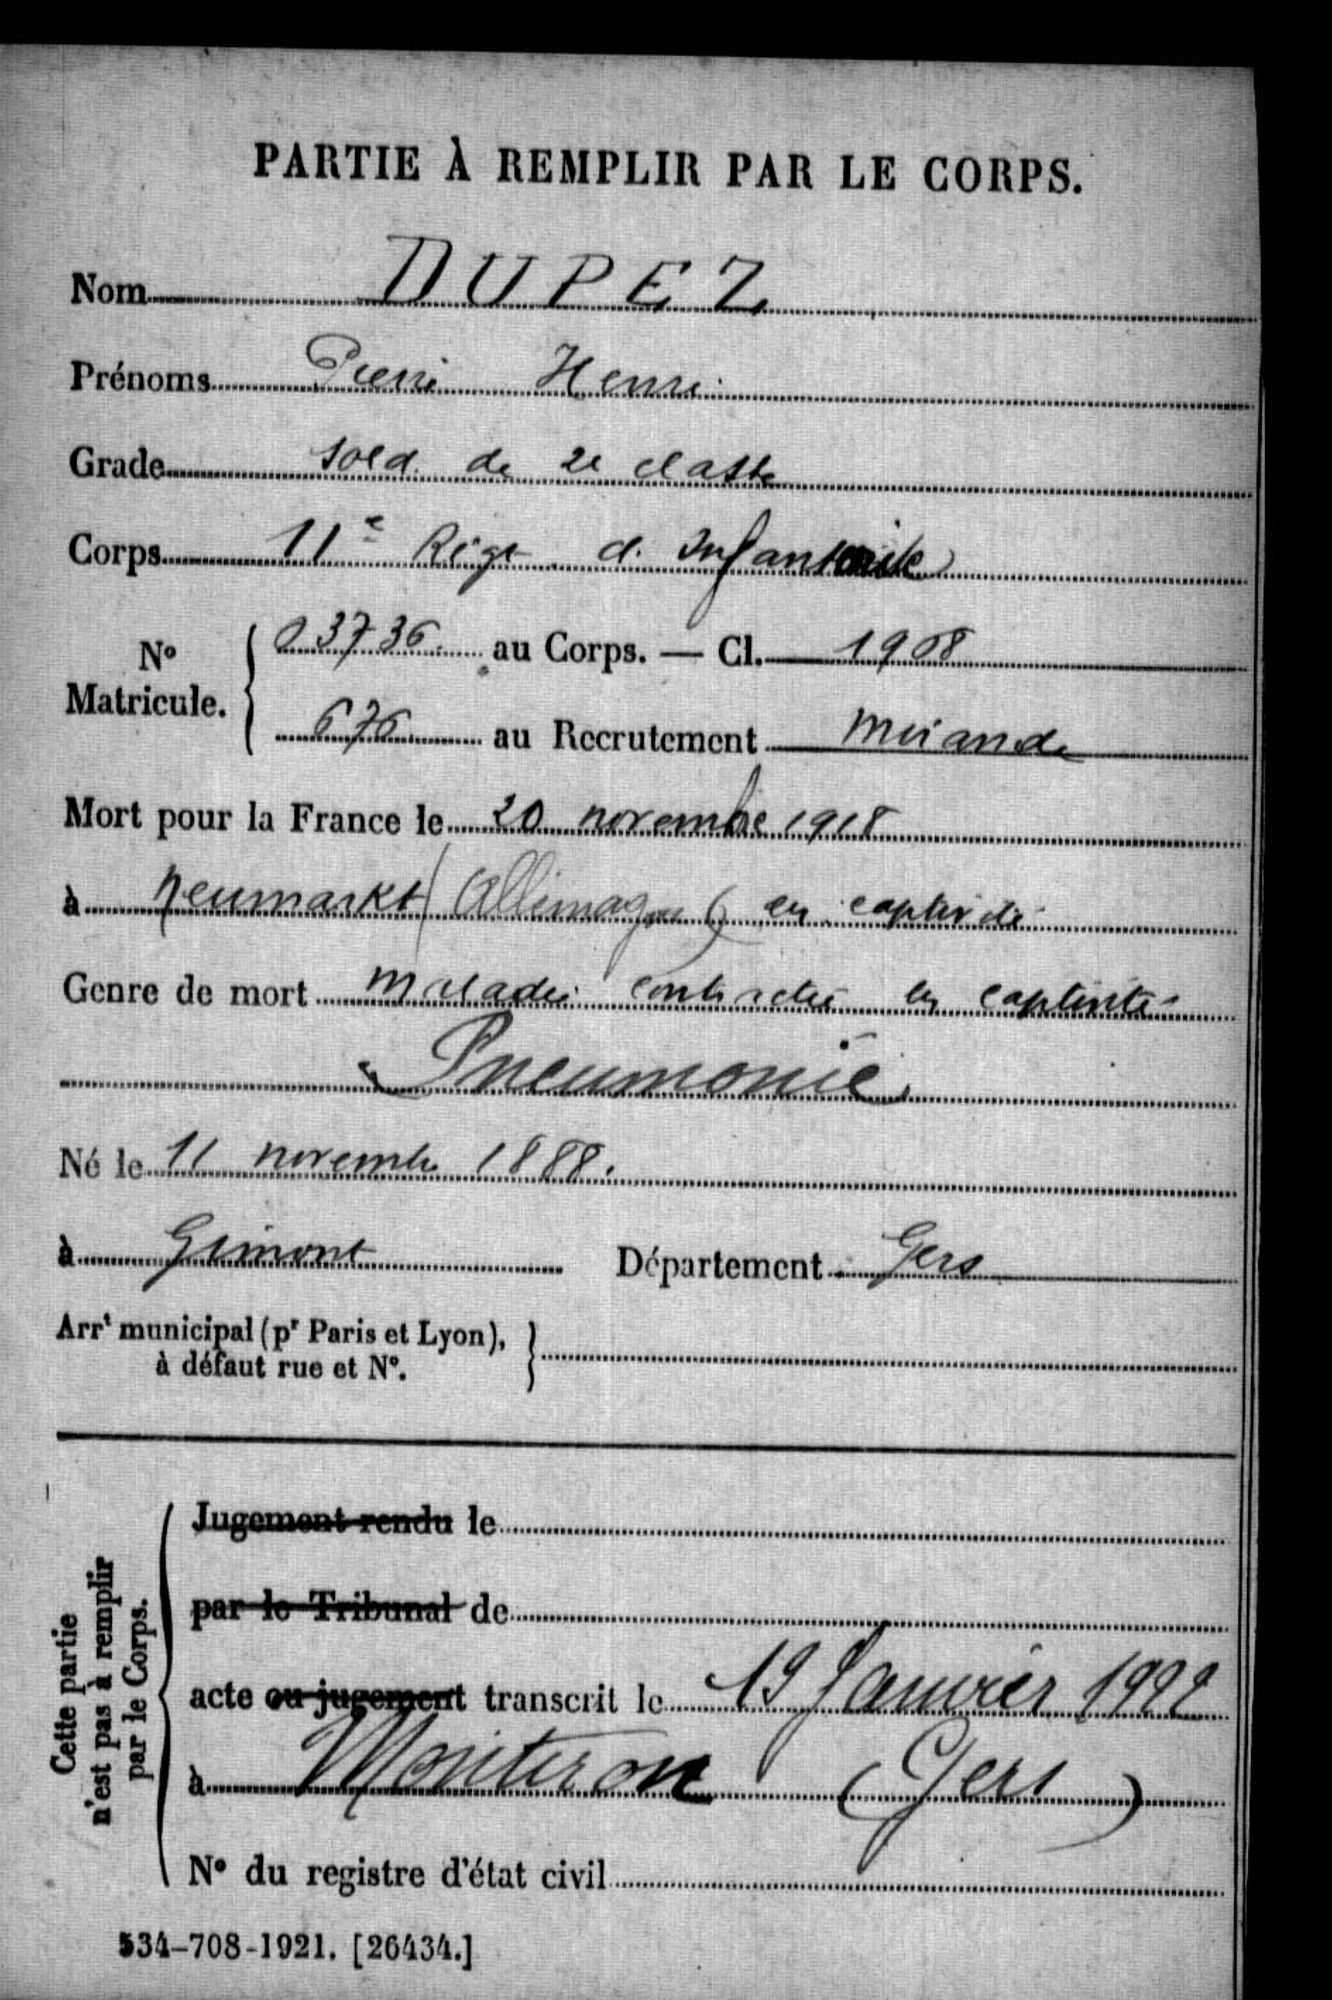 PARTIE À REMPLIR PAR LE CORPS.
Nom DUPEZ
Prénoms Pierre Henri
Grade Sold. de 2e classe
Corps 11e Régt d'Infanterie
No Matricule. 03736 au Corps. — Cl. 1908
676 au Recrutement Mirande
Mort pour la France le 20 novembre 1918
à Neumarkt (Allemagne) en captivité
Genre de mort maladie contractée en captivité
Pneumonie
Né le 11 novembre 1888.
à Gimont Département Gers
Arrt municipal (pr Paris et Lyon),
à défaut rue et No.
Cette partie
n'est pas à remplir
par le Corps.
Jugement rendu le
par le Tribunal de
acte ou jugement transcrit le 19 Janvier 1922
à Montiron (Gers)
No du registre d'état civil
534-708-1921. [26434.]